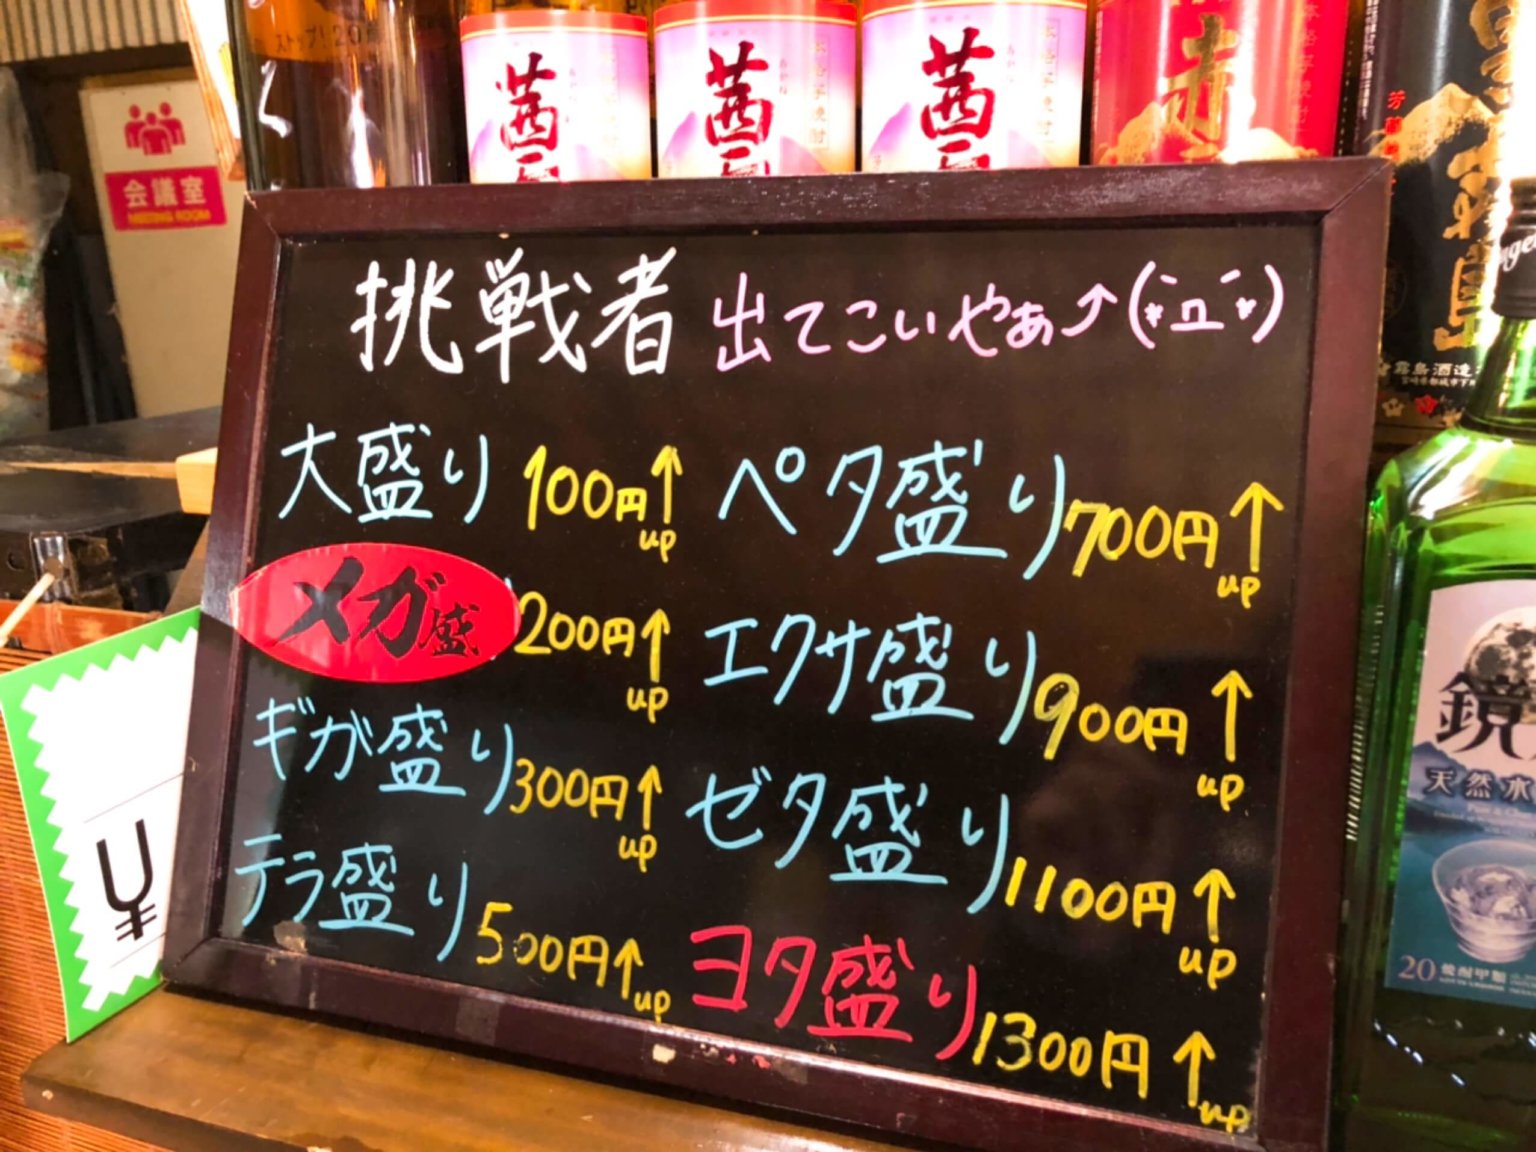 ストップ!20
茜
茜
茜
赤
会議室
MEETING ROOM
霧島酒造
挑戦者 出てこいやぁ⤴(*`д´*)
大盛り 100円↑up
メガ盛 200円↑up
ギガ盛り 300円↑up
テラ盛り 500円↑up
ペタ盛り 700円↑up
エクサ盛り 900円↑up
ゼタ盛り 1100円↑up
ヨタ盛り 1300円↑up
¥
鏡
天然水
20 焼酎甲類